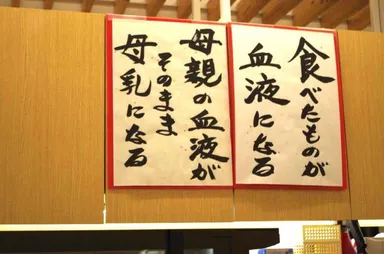 食べたものが
血液になる
母親の血液が
そのまま
母乳になる